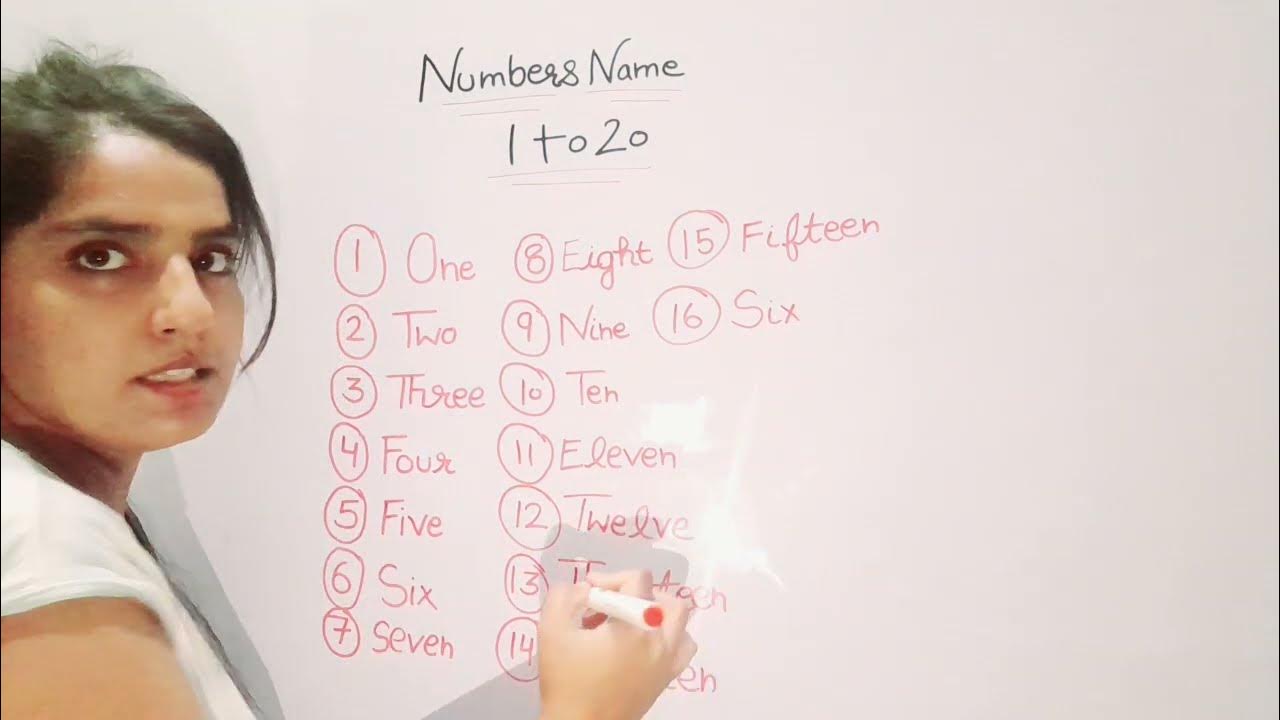 Numbers Name
1 to 20
1 One
2 Two
3 Three
4 Four
5 Five
6 Six
7 Seven
8 Eight
9 Nine
10 Ten
11 Eleven
12 Twelve
13
14
15 Fifteen
16 Six